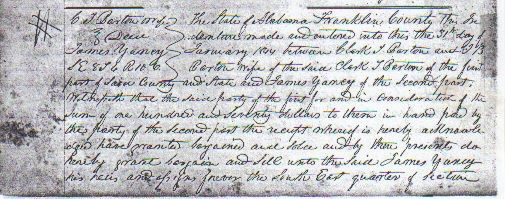 C. S. Barton & wife The State of Alabama Franklin County This In
& Deed denture made and entered into this the 31st day of
James Yancy January between Clark S Barton and
Barton wife of the said Clark S Barton of the first
part of said County and State and James Yancy of the Second part,
Witnesseth that the said party of the first for and in consideration of the
sum of one hundred and seventy dollars to them in hand paid by
the party of the second part the receipt whereof is hereby acknowle
dged have granted bargained and sold and by these presents do
hereby grant bargain and sell unto the said James Yancy
his heirs and assigns forever the South East quarter of section